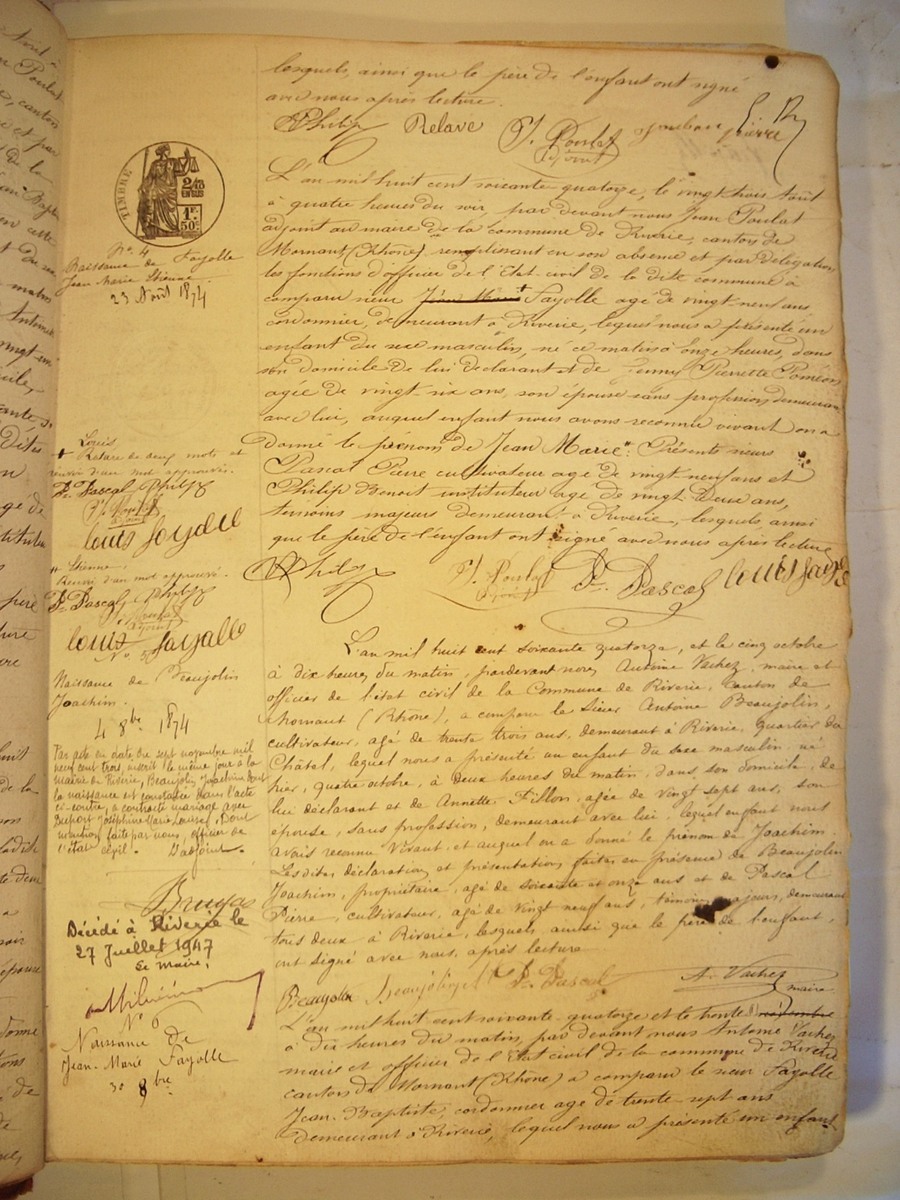 lesquels, ainsi que le père de l'enfant ont signé
avec nous après lecture.
Philip Relave J. Poulat Pierre
adjoint
TIMBRE
2/10
EN SUS
1F.
50c
No. 4
Naissance de Fayolle
Jean Marie Etienne
23 Août 1874
L'an mil huit cent soixante quatorze, le vingt trois Août
à quatre heures du soir, par devant nous Jean Poulat
adjoint au maire de la commune de Riverie, canton de
Mornant (Rhône) remplissant en son absence et par délégation
les fonctions d'officier de l'Etat civil de la dite commune a
comparu sieur Jean Marie + Fayolle agé de vingt neuf ans
cordonnier, demeurant à Riverie, lequel nous a présenté un
enfant du sexe masculin, né ce matin à onze heures, dans
son domicile de lui déclarant et de Jenny Pierrette Poméon
agée de vingt-six ans, son épouse sans profession, demeurant
avec lui, auquel enfant nous avons reconnu vivant on a
donné le prénom de Jean Marie. Présents sieurs
Pascal Pierre cultivateur agé de vingt neuf ans et
Philip Benoit instituteur agé de vingt deux ans,
témoins majeurs demeurant à Riverie, lesquels ainsi
que le père de l'enfant ont signé avec nous après lecture
Philip J. Poulat Pre Pascal Louis Fayolle
adjoint
Louis
+ Rature de deux mots et
renvoi d'un mot approuvés.
Pre Pascal Philip
J. Poulat
adjoint
Louis Fayolle
Etienne.
Renvoi d'un mot approuvé.
Pre Pascal Philip
Poulat
adjoint
Louis Fayolle
No 5
Naissance de Beaujolin
Joachim.
4 8bre 1874
L'an mil huit cent soixante quatorze, et le cinq octobre
à dix heures du matin, pardevant nous, Antoine Vachez, maire et
officier de l'état civil de la Commune de Riverie, canton de
Mornant (Rhône), a comparu le Sieur Antoine Beaujolin,
cultivateur, agé de trente trois ans, demeurant à Riverie, quartier du
Châtel, lequel nous a présenté un enfant du sexe masculin, né
hier, quatre octobre, à deux heures du matin, dans son domicile, de
lui déclarant et de Annette Fillon, agée de vingt sept ans, son
épouse, sans profession, demeurant avec lui, lequel enfant nous
avons reconnu vivant et auquel on a donné le prénom de Joachim.
Les dites déclaration et présentation, faites en présence de Beaujolin
Joachim, propriétaire, agé de soixante et onze ans et de Pascal
Pierre, cultivateur, agé de vingt neuf ans, témoins majeurs, demeurant
tous deux à Riverie, lesquels, ainsi que le père de l'enfant,
ont signé avec nous, après lecture
Beaujolin Beaujolin Pre Pascal A. Vachez
maire
Par acte en date du sept novembre mil
neuf cent trois, inscrit le même jour à la
mairie de Riverie, Beaujolin, Joachim dont
la naissance est constatée dans l'acte
ci-contre, a contracté mariage avec
Joséphine Marie Louise. Dont
mention faite par nous, officier de
l'état civil. L'adjoint.
Décédé à Riverie le
27 Juillet 1947
Le maire,
No 6
Naissance de
Jean-Marie Fayolle
30 8bre
L'an mil huit cent soixante quatorze et le trente
à dix heures du matin, par devant nous Antoine Vachez
maire et officier de l'Etat civil de la commune de Riverie
canton de Mornant (Rhône) a comparu le sieur Fayolle
Jean-Baptiste, cordonnier agé de trente sept ans
demeurant à Riverie, lequel nous a présenté un enfant